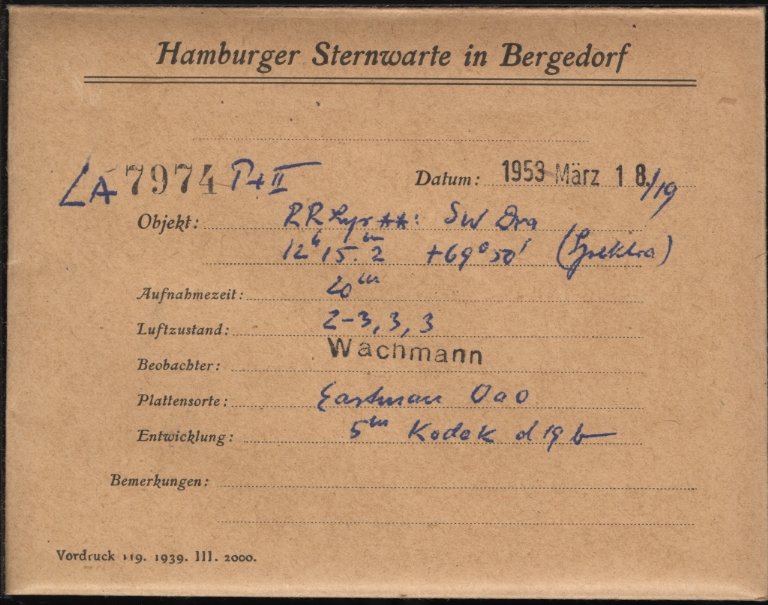 Hamburger Sternwarte in Bergedorf
LA 7974 I+II Datum: 1953 März 18./19
Objekt: RR Lyr **: SW Dra
12ʰ 15.ᵐ2 +69° 50' (Spektra)
Aufnahmezeit: 20ᵐ
Luftzustand: 2-3, 3, 3
Beobachter: Wachmann
Plattensorte: Eastman OaO
Entwicklung: 5ᵐ Kodak d19b
Bemerkungen:
Vordruck 119. 1939. III. 2000.